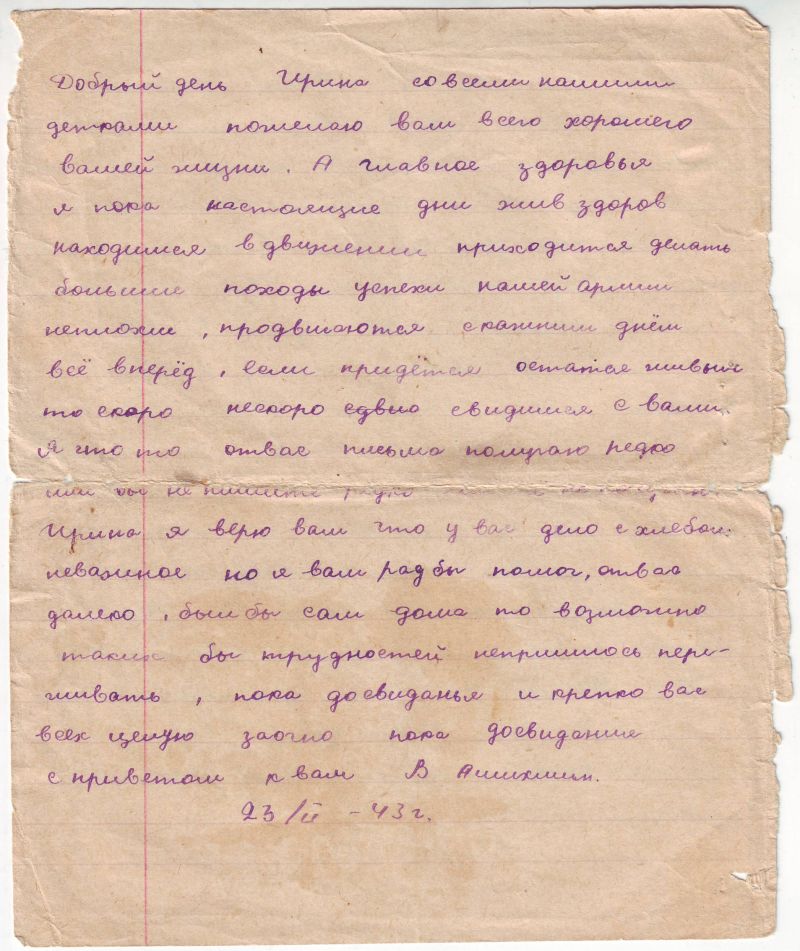 Добрый день Ирина со всеми нашими
детками пожелаю вам всего хорошего
вашей жизни. А главное здоровья
я пока настоящие дни жив здоров
находимся в движении приходится делать
большие походы успехи нашей армии
неплохии, продвигаются с каждним днём
всё вперёд, если придётся остатся живым
то скоро нескоро свидимся с вами.
Я что то отвас письма получаю редко
или вы не пишите редко
Ирина я верю вам что у вас дело с хлебом
неважное но я вам рад бы помог, отвас
далеко, был бы сам дома то возможно
таких бы трудностей непришлось пере-
живать, пока досвиданья и крепко вас
всех целую заочно пока досвидания
с приветом к вам В
23/II - 43 г.